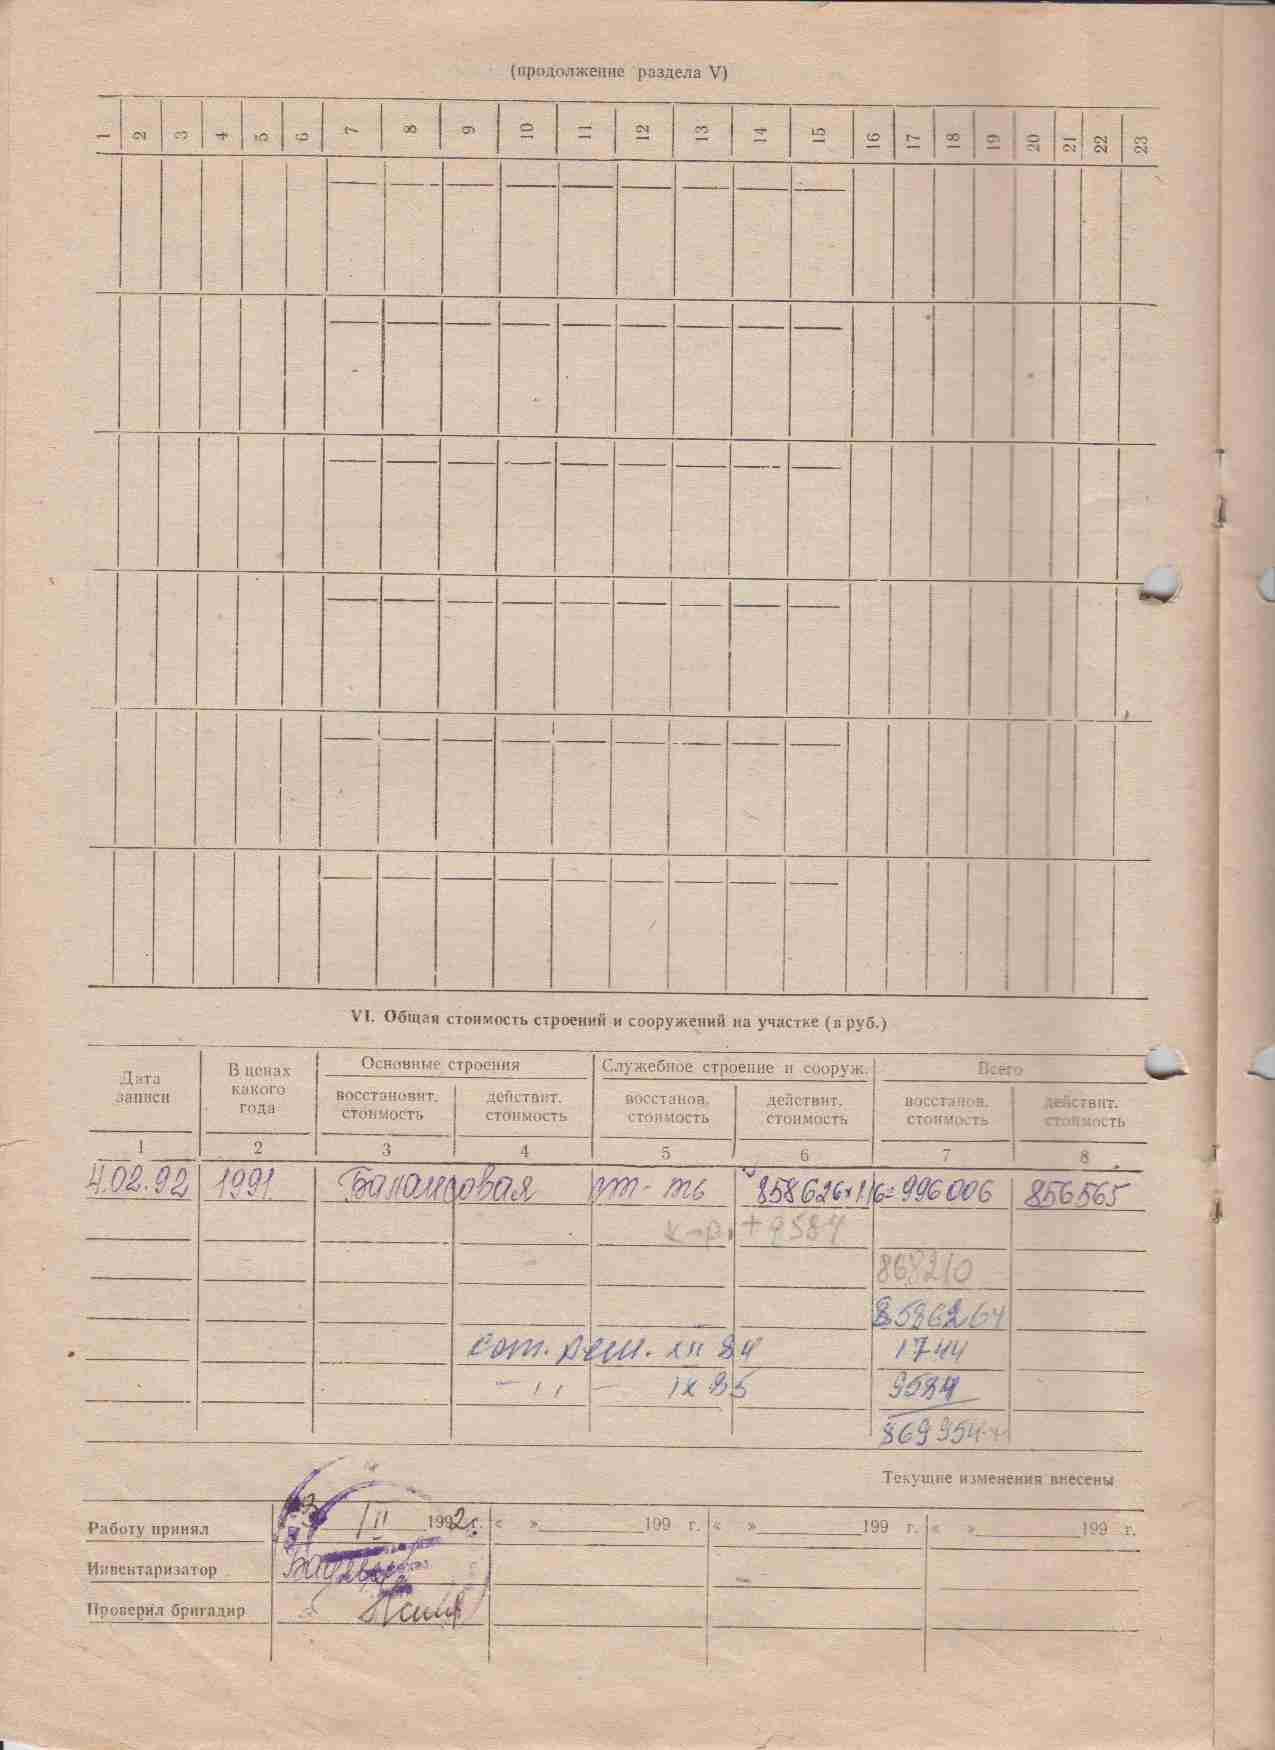 (продолжение раздела V)
1 2 3 4 5 6 7 8 9 10 11 12 13 14 15 16 17 18 19 20 21 22 23
VI. Общая стоимость строений и сооружений на участке (в руб.)
Дата записи
В ценах какого года
Основные строения
Служебное строение и сооруж.
Всего
восстановит. стоимость
действит. стоимость
восстанов. стоимость
действит. стоимость
восстанов. стоимость
действит. стоимость
1 2 3 4 5 6 7 8
4.02.92 1991 Балансовая ст-ть 858626×1,16=996006 856565
к-р. + 9584
868210
8586264
сот. рем. XII 84 1744
– 11 – IX 85 9584
869954
Текущие изменения внесены
Работу принял III 1992 г. « » 199 г. « » 199 г. « » 199 г.
Инвентаризатор
Проверил бригадир